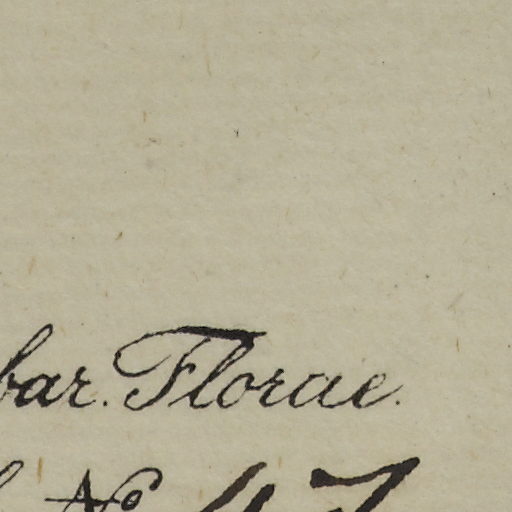 bar. Florae.
No 47